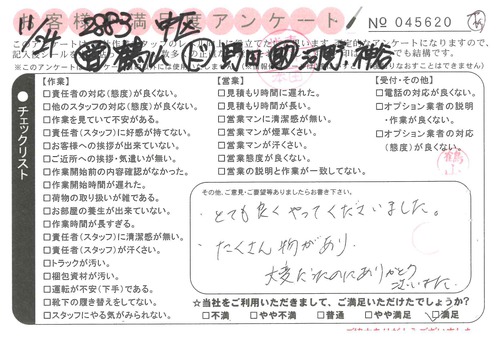 お客様満足度アンケート
No 045620
11/24 2383 中区
チェックリスト
【作業】
□責任者の対応(態度)が良くない。
□他のスタッフの対応(態度)が良くない。
□作業を見ていて不安がある。
□責任者(スタッフ)に好感が持てない。
□お客様への挨拶が出来ていない。
□ご近所への挨拶・気遣いが無い。
□作業開始前の内容確認がなかった。
□作業開始時間が遅れた。
□荷物の取り扱いが雑である。
□お部屋の養生が出来ていない。
□作業時間が長すぎる。
□責任者(スタッフ)に清潔感が無い。
□責任者(スタッフ)が汗くさい。
□トラックが汚い。
□梱包資材が汚い。
□運転が不安(下手)である。
□靴下の履き替えをしてない。
□スタッフにやる気がみられない。
【営業】
□見積もり時間に遅れた。
□見積もり時間が長い。
□営業マンに清潔感が無い。
□営業マンが煙草くさい。
□営業マンが汗くさい。
□営業態度が良くない。
□営業の説明と作業が一致してない。
【受付・その他】
□電話の対応が良くない。
□オプション業者の説明
・作業が良くない。
□オプション業者の対応
(態度)が良くない。
その他、ご意見・ご要望等ありましたらお書き下さい。
・とても良くやってくださいました。
・たくさん物があり
大変だったのにありがとう
ございました。
☆当社をご利用いただきまして、ご満足いただけたでしょうか?
□不満 □やや不満 □普通 □やや満足 □満足